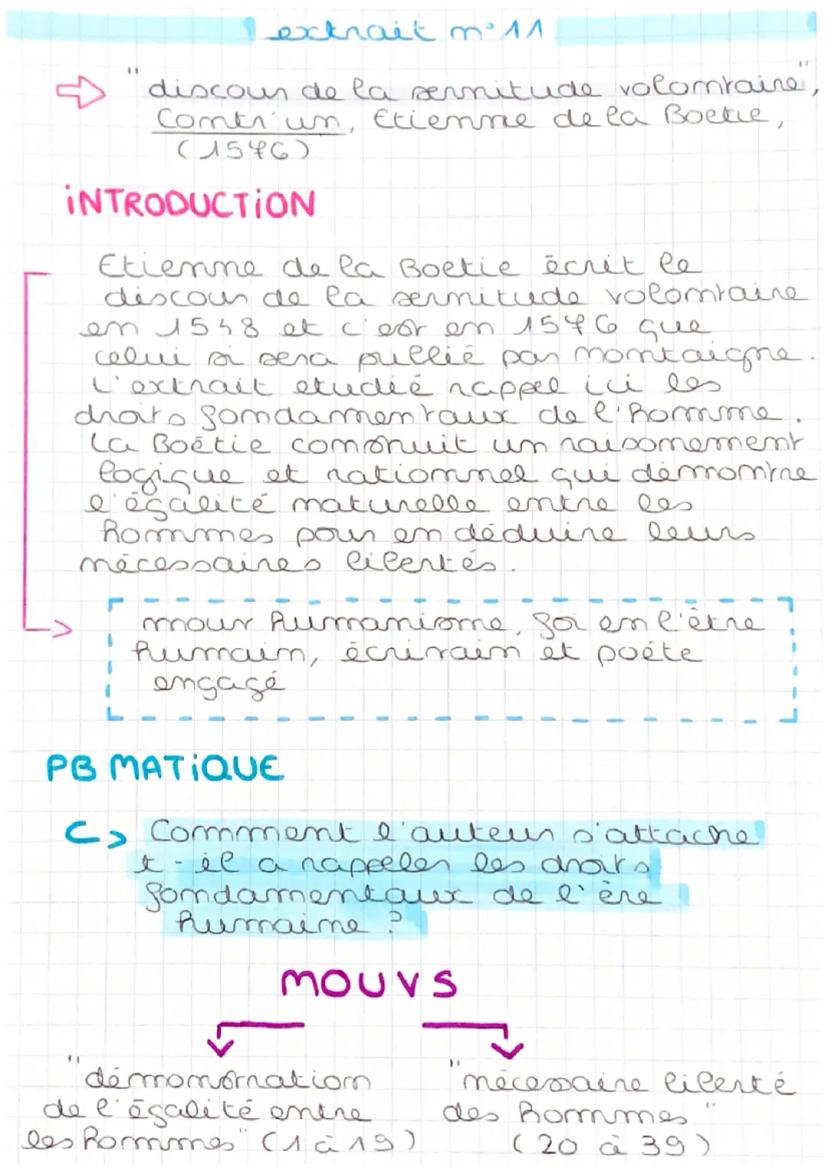 extrait n°11
"discour de la servitude volontaire",
Contr'un, Etienne de la Boetie,
(1576)
INTRODUCTION
Etienne de la Boetie écrit le
discour de la servitude volontaire
en 1548 et c'est en 1576 que
celui si sera pullié par montaigne.
L'extrait etudié rappel ici les
droits fondamentaux de l'homme.
La Boétie construit un raisonnement
logique et rationnel qui démontre
l'égalité naturelle entre les
hommes pour en déduire leurs
nécessaires libertés.
mouv humanisme, foi en l'être
humain, écrivain et poéte
engagé
PB MATIQUE
Comment l'auteur s'attache
t-il a rappeler les droits
fondamentaux de l'ère
humaine ?
MOUVS
"démonstration
de l'égalité entre
les hommes" (1 à 19)
"nécessaire liberté
des hommes"
(20 à 39)